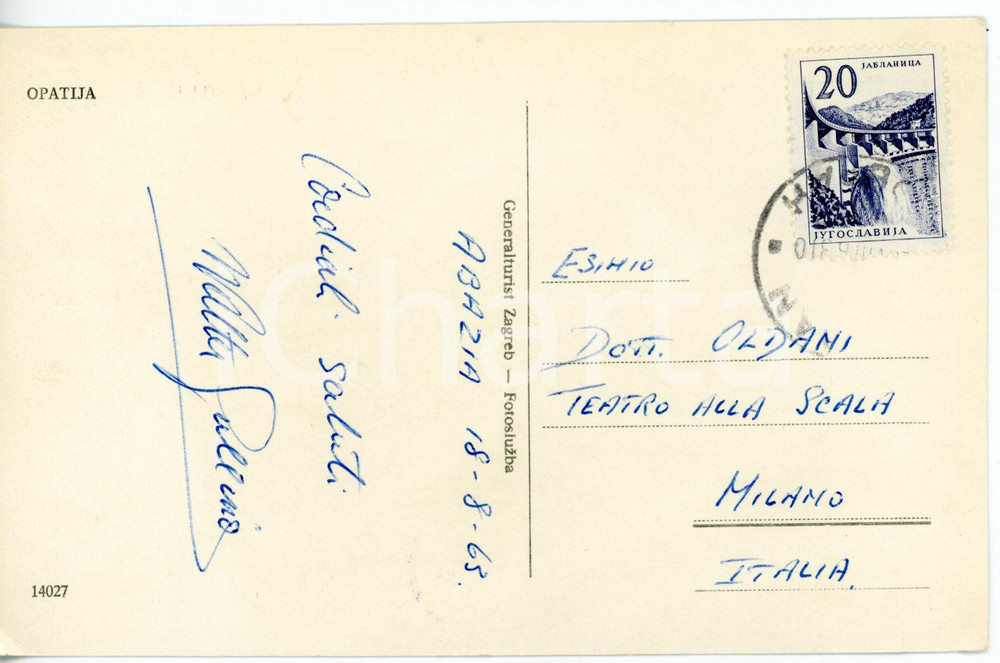 OPATIJA
Cordiali saluti
ABAZIA 18-8-63.
Generalturist Zagreb — Fotoslužba
20
ЈАБЛАНИЦА
ЈУГОСЛАВИЈА
ESIMIO
DOTT. OLDANI
TEATRO ALLA SCALA
MILANO
ITALIA
14027
Charta